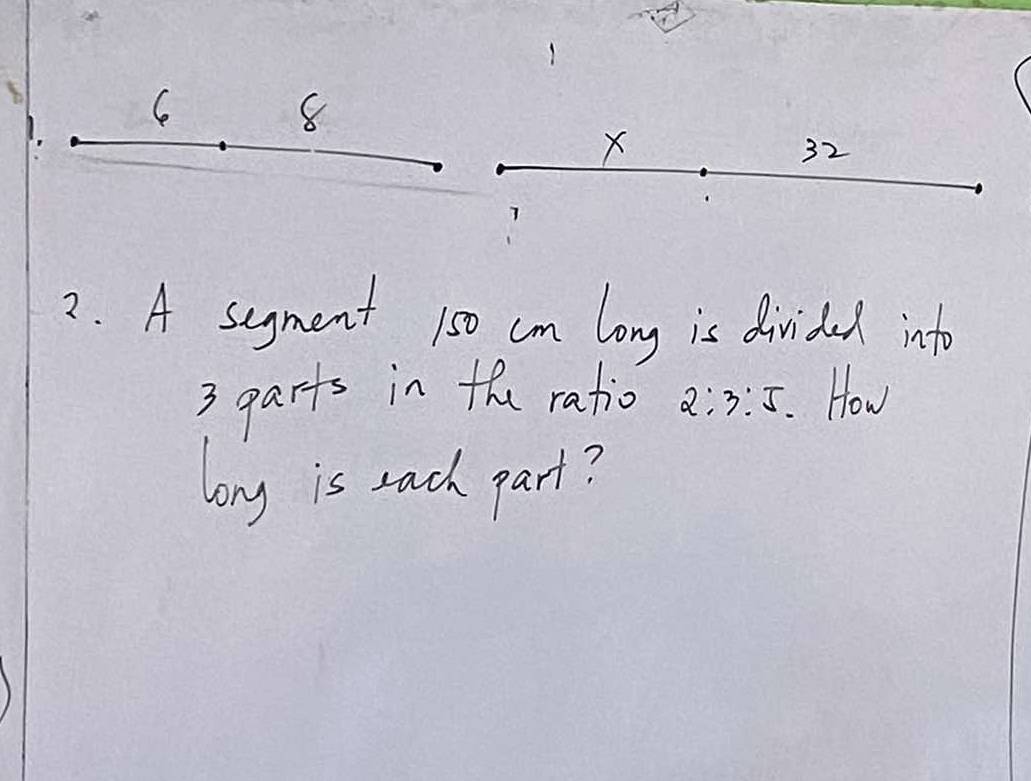 1.
6 8
x 32
2. A segment 150 cm long is divided into
3 parts in the ratio 2:3:5. How
long is each part?